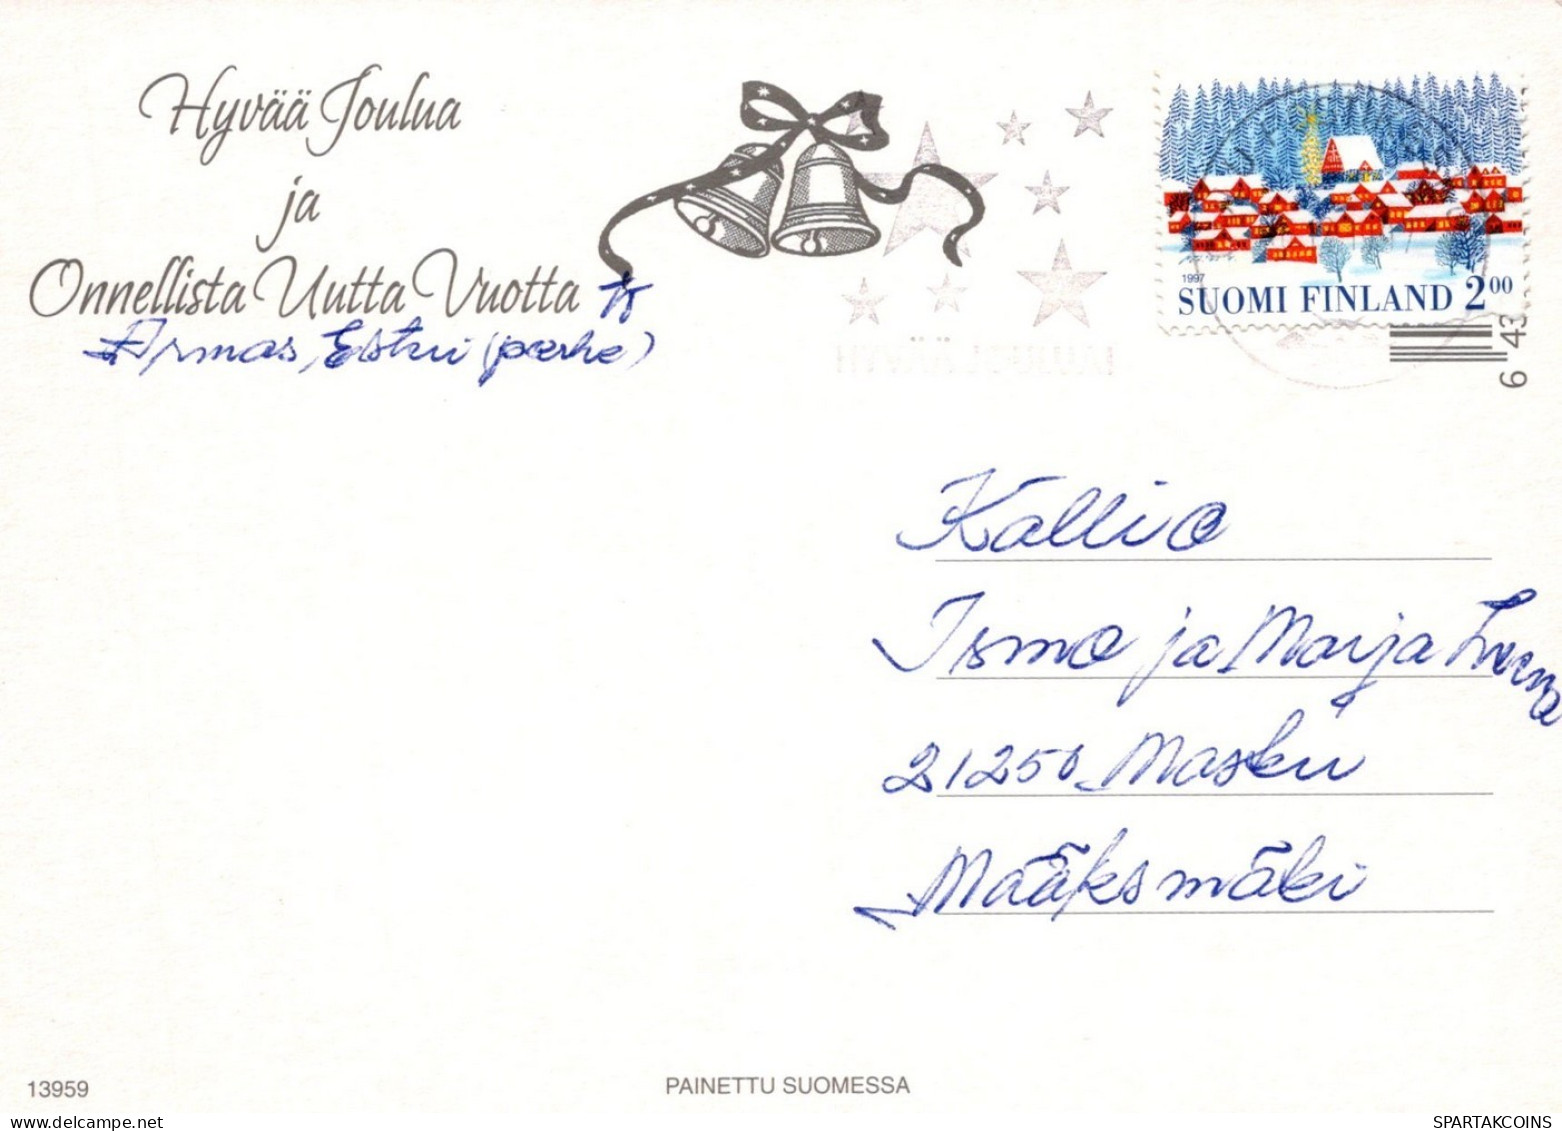 Hyvää Joulua
ja
Onnellista Uutta Vuotta
Armas, Esteri (perhe)
HYVÄÄ JOULUA
1997
SUOMI FINLAND 2 00
6 43
Kallio
Ismo ja Marja Leena
21250 Masku
Määksmäki
13959
PAINETTU SUOMESSA
SPARTAKCOINS